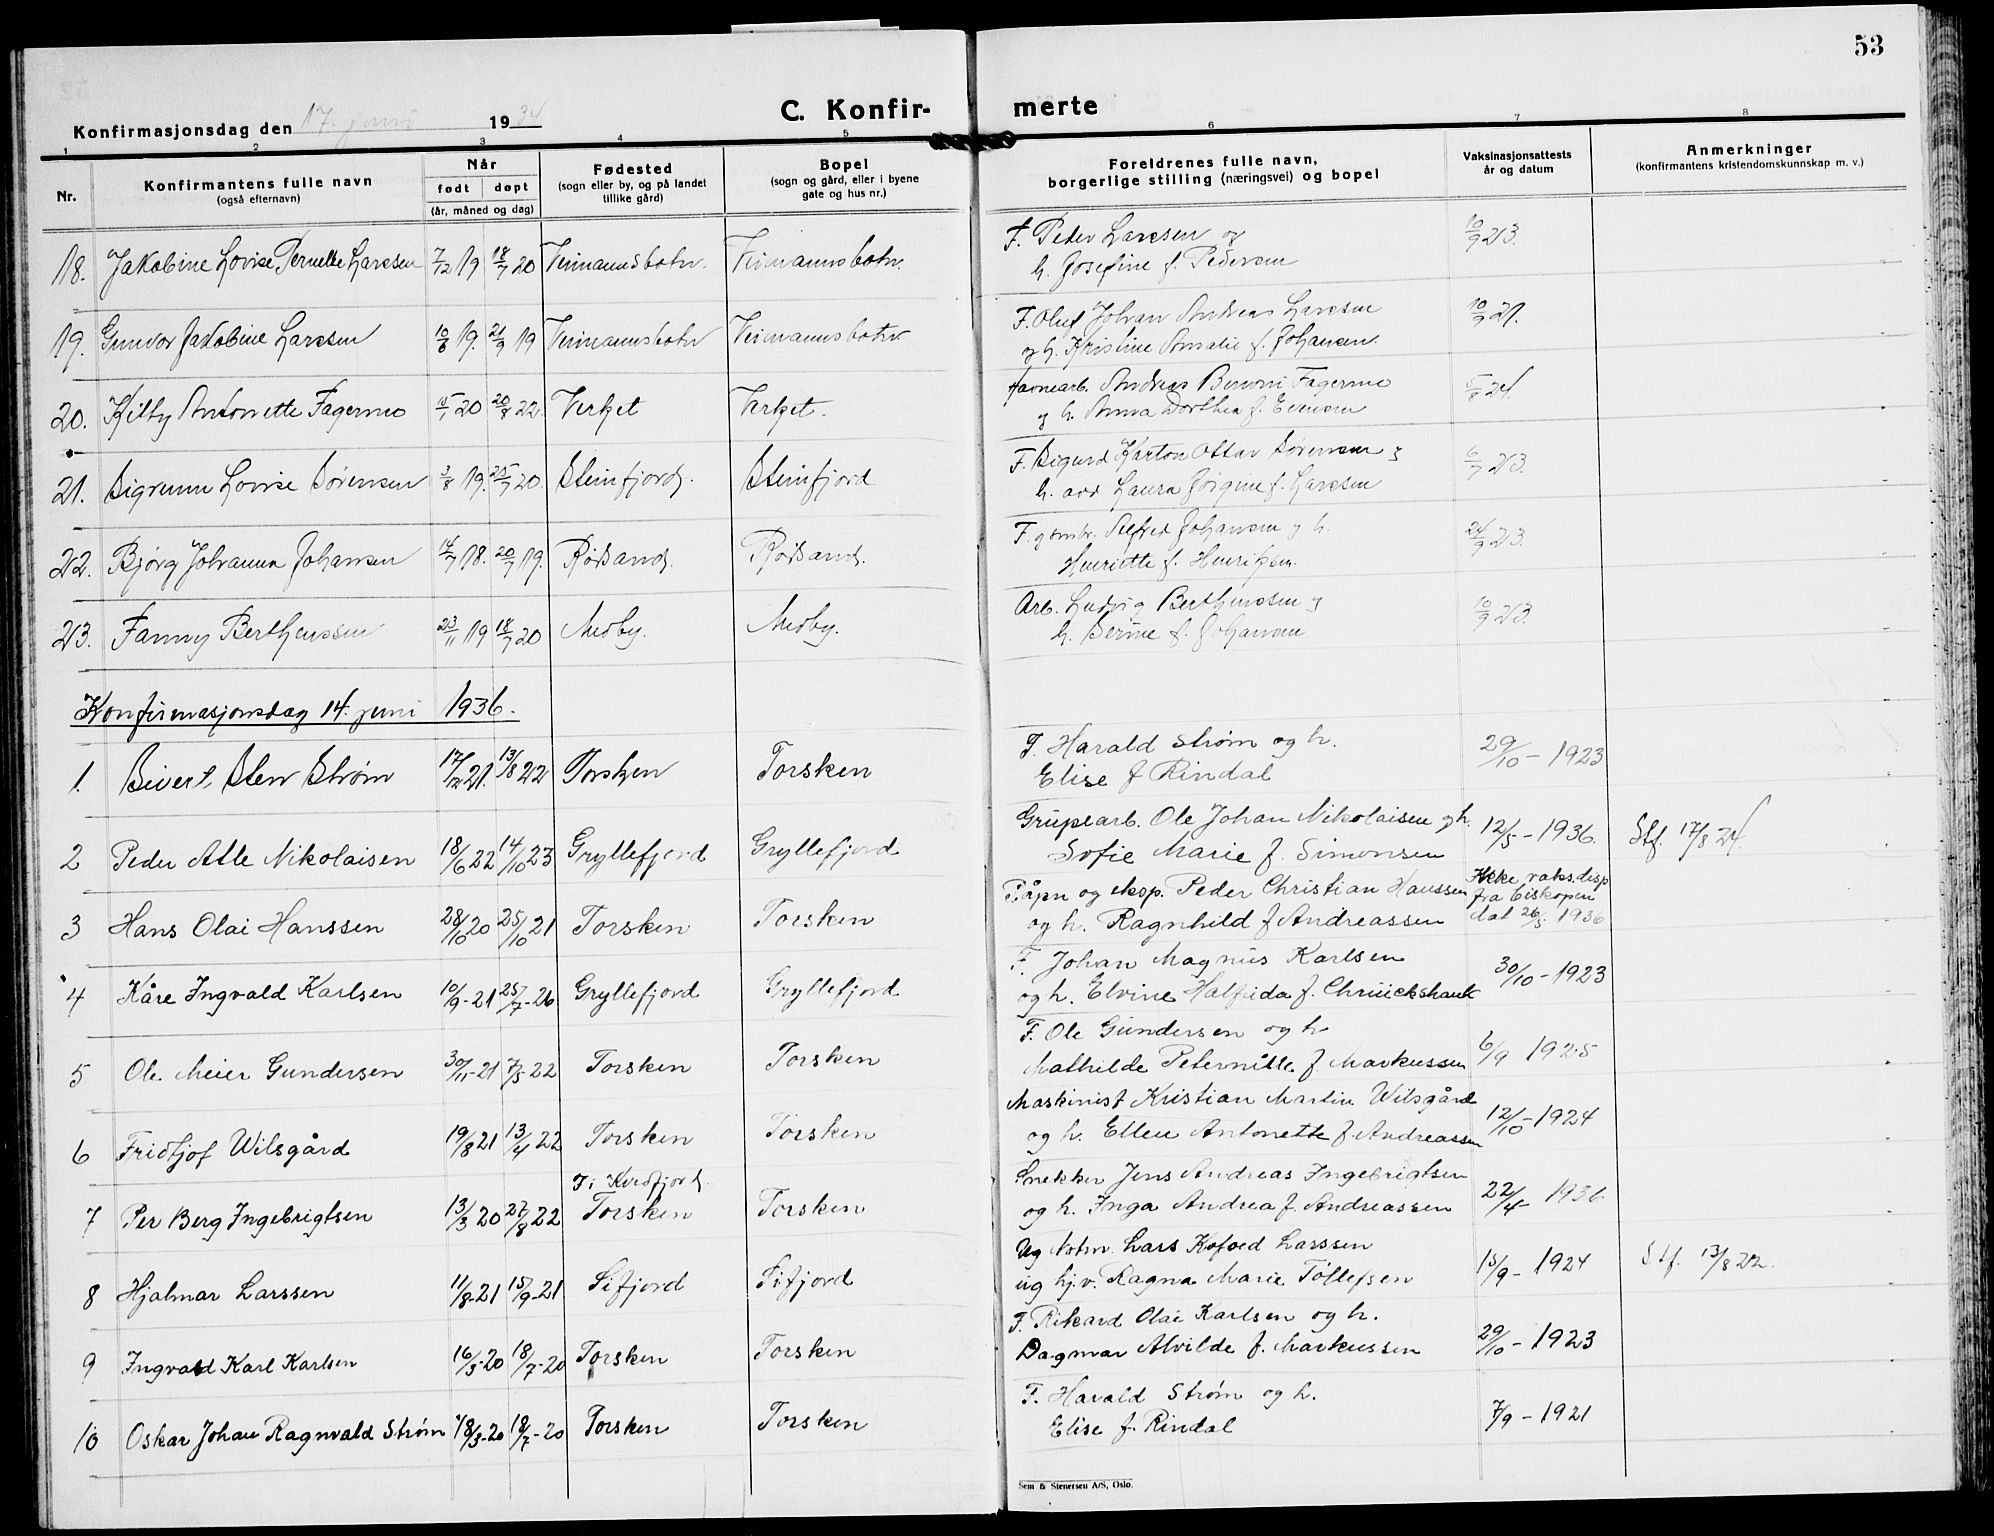 53
C. Konfir-
merte
Konfirmasjonsdag den 17. juni 1934
1 2 3 4 5 6 7 8
Nr.
Konfirmantens fulle navn
(også efternavn)
Når
født døpt
(år, måned og dag)
Fødested
(sogn eller by, og på landet
tillike gård)
Bopel
(sogn og gård, eller i byene
gate og hus nr.)
Foreldrenes fulle navn,
borgerlige stilling (næringsvei) og bopel
Vaksinasjonsattests
år og datum
Anmerkninger
(konfirmantens kristendomskunnskap m. v.)
18. Jakobine Lovise Pernelle Larssen 7/12 19 18/7 20
F. Peder Larssen og
h. Josefine f. Pedersen
10/9 23.
19. Gunvor Jakobine Larssen 10/6 19. 21/9 19
F. Oluf Johan Andreas Larssen
og h. Kristine Amalie f. Johansen.
10/9 21.
20. Kitty Antonette Fagermo 15/1 20 20/8 22. Verket Verket.
Havnearb. Andreas Benoni Fagermo
og h. Anna Dorthea f. Evensen
5/8 24.
21. Sigrunn Lovise Sørensen 3/8 19. 25/7 20. Steinfjord. Steinfjord
F. Sigurd Karton Ottar Sørensen og
h. Laura Jørgine f. Larssen
6/7 23.
22. Bjørg Johanna Johansen 14/7 18. 20/7 19. Rødsand. Rødsand.
F. og smbr. Alfred Johansen og h.
Henriette f. Henriksen.
24/9 23.
23. Fanny Berthenssen 23/11 19 18/7 20 Medby. Medby.
Arb. Ludvig Berthenssen og
h. Serine f. Johansen
10/9 23.
Konfirmasjonsdag 14. juni 1936.
1. Sivert Sten Strøm 17/12 21. 13/8 22 Torsken Torsken
F. Harald Strøm og h.
Elise f Rindal
29/10 - 1923
2 Peder Atle Nikolaisen 18/6 22 14/10 23 Gryllefjord Gryllefjord
Grubearb. Ole Johan Nikolaisen og h.
Sofie Marie f. Simonsen
12/5 - 1936. Stf. 17/8 24.
3 Hans Olai Hanssen 28/10 20 25/10 21 Torsken Torsken
P.åpn og eksp. Peder Christian Hanssen
og h. Ragnhild f Andreassen
Ikke vaks. disp
fra biskopen
dat 26/5 1936
4 Kåre Ingvald Karlsen 10/9-21 25/7-26 Gryllefjord Gryllefjord
F. Johan Magnus Karlsen
og h. Elvine Halfrida f. Chruickshank
30/10 - 1923
5 Ole Meier Gundersen 30/11-21 7/5-22 Torsken Torsken
F. Ole Gundersen og h
Mathilde Peternille f. Markussen
6/9 1925
6 Fridtjof Wilsgård 19/8 21 13/4 22 Torsken Torsken
Maskinist Kristian Martin Wilsgård
og h. Ellen Antonette f. Andreassen
12/10 - 1924
7 Per Berg Ingebrigtsen 13/3 20 27/8 22
I. Kvedfjord.
Torsken Torsken
Snekker Jens Andreas Ingebrigtsen
og h. Inga Andrea f. Andreassen
22/4 - 1936
8 Hjalmar Larssen 11/8-21 15/9-21 Sifjord Sifjord
Ug Notm. Lars Kofoed Larssen
ug hj.v. Ragna Marie Tollefsen
15/9 - 1924 Stf. 13/8 22.
9 Ingvald Karl Karlsen 16/3-20 18/7-20 Torsken Torsken
F. Rikard Olai Karlsen og h.
Dagmar Alvilde f. Markussen
29/10 - 1923
10 Oskar Johan Ragnvald Strøm 18/3-20 18/7-20 Torsken Torsken
F. Harald Strøm og h.
Elise f. Rindal
7/9 - 1921
Sem & Stenersen A/S, Oslo.